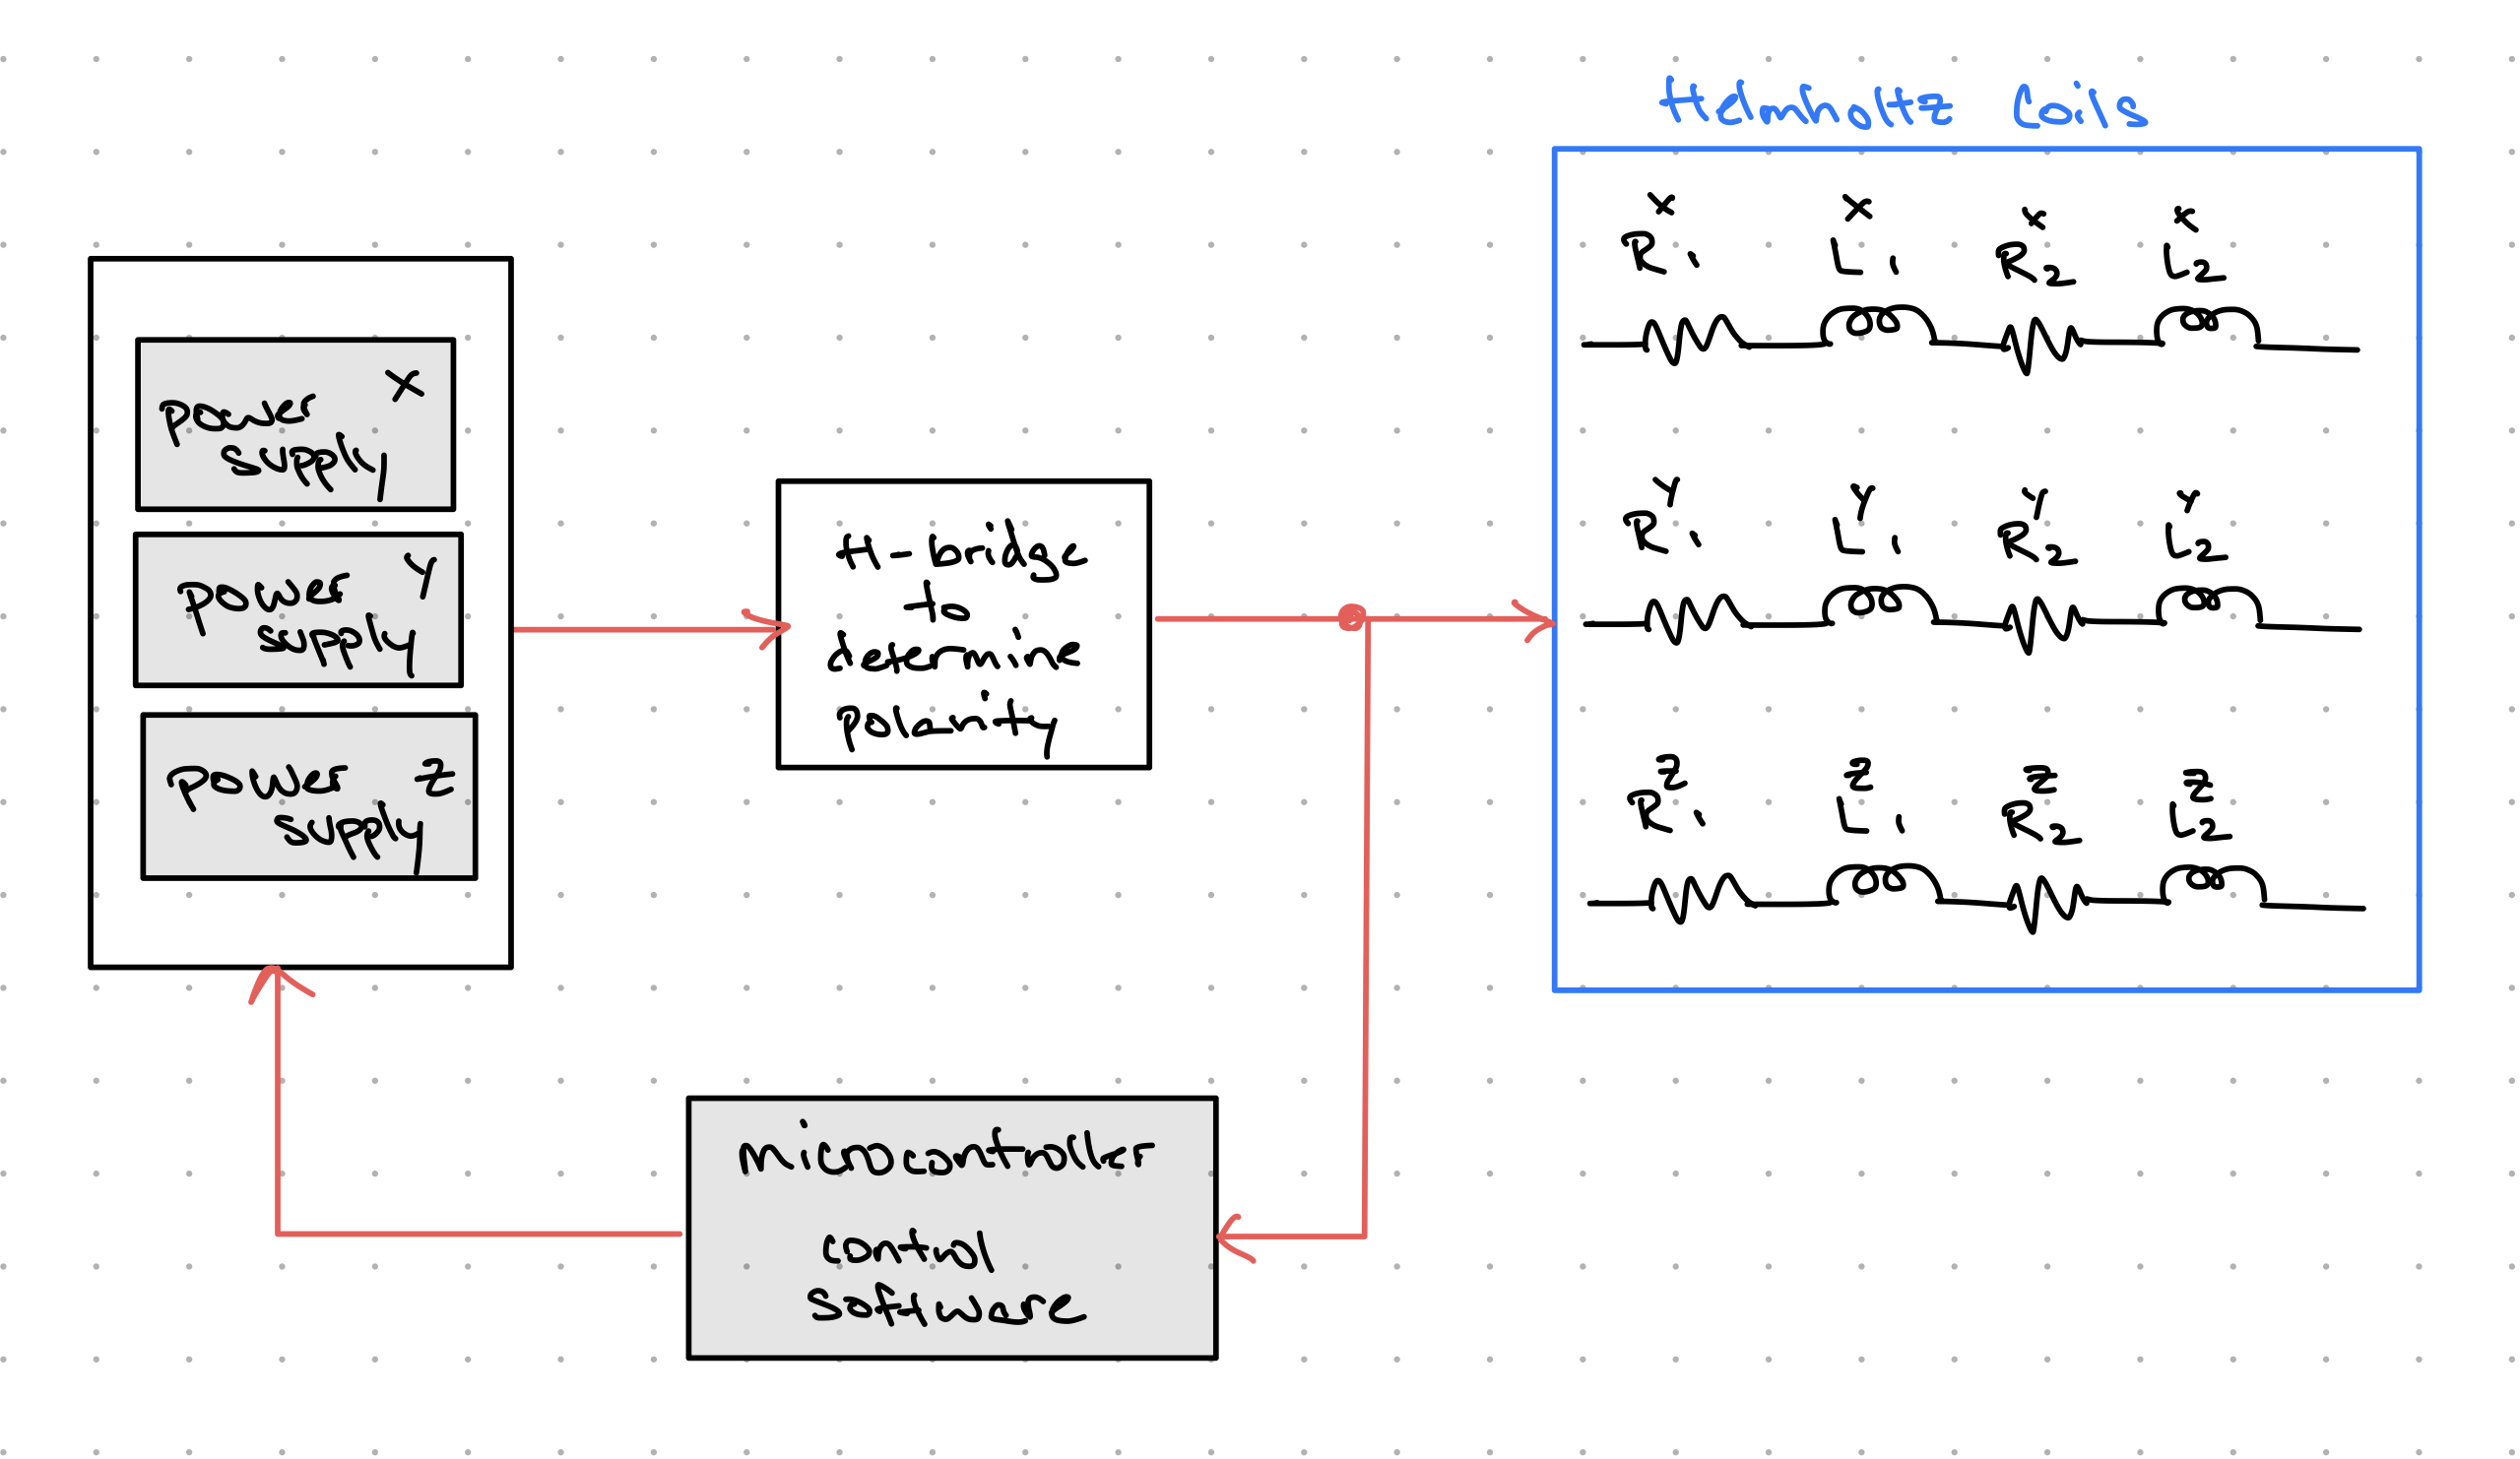 Helmholtz Coils
power X
supply
power Y
supply
power Z
supply
H-bridge
to
determine
polarity
X X X X
R1 L1 R2 L2
Y Y Y Y
R1 L1 R2 L2
Z Z Z Z
R1 L1 R2 L2
Microcontroller
control
software